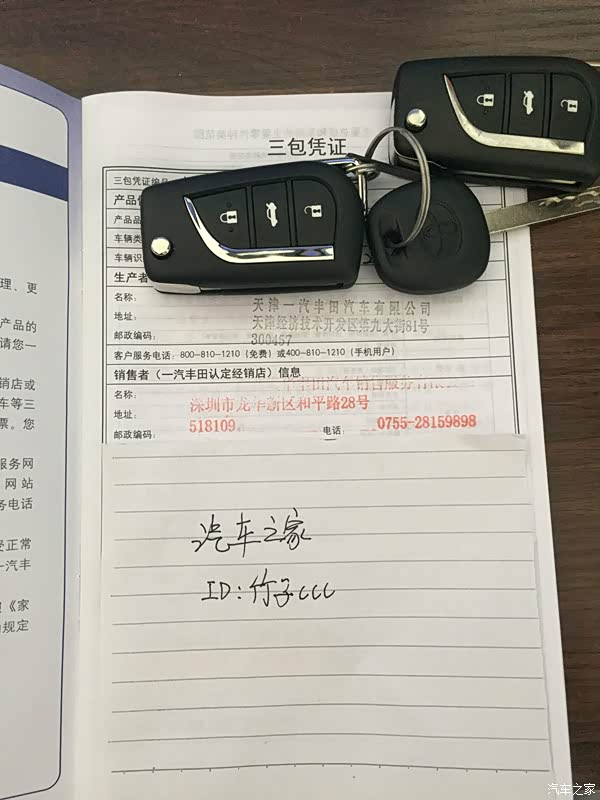 三包凭证
三包凭证编号
产品
产品品
车辆类
车辆识
生产者
名称:
天津一汽丰田汽车有限公司
地址:
天津经济技术开发区第九大街81号
邮政编码:
300457
客户服务电话: 800-810-1210 (免费) 或400-810-1210 (手机用户)
销售者 (一汽丰田认定经销店) 信息
名称:
丰田汽车销售服务有限
地址:
深圳市龙华新区和平路28号
邮政编码:
518109
电话:
0755-28159898
理、更
产品的
请您一
销店或
车等三
票。您
服务网
网站
务电话
受正常
一汽丰
《家
规定
汽车之家
ID: 竹子ccc
汽车之家